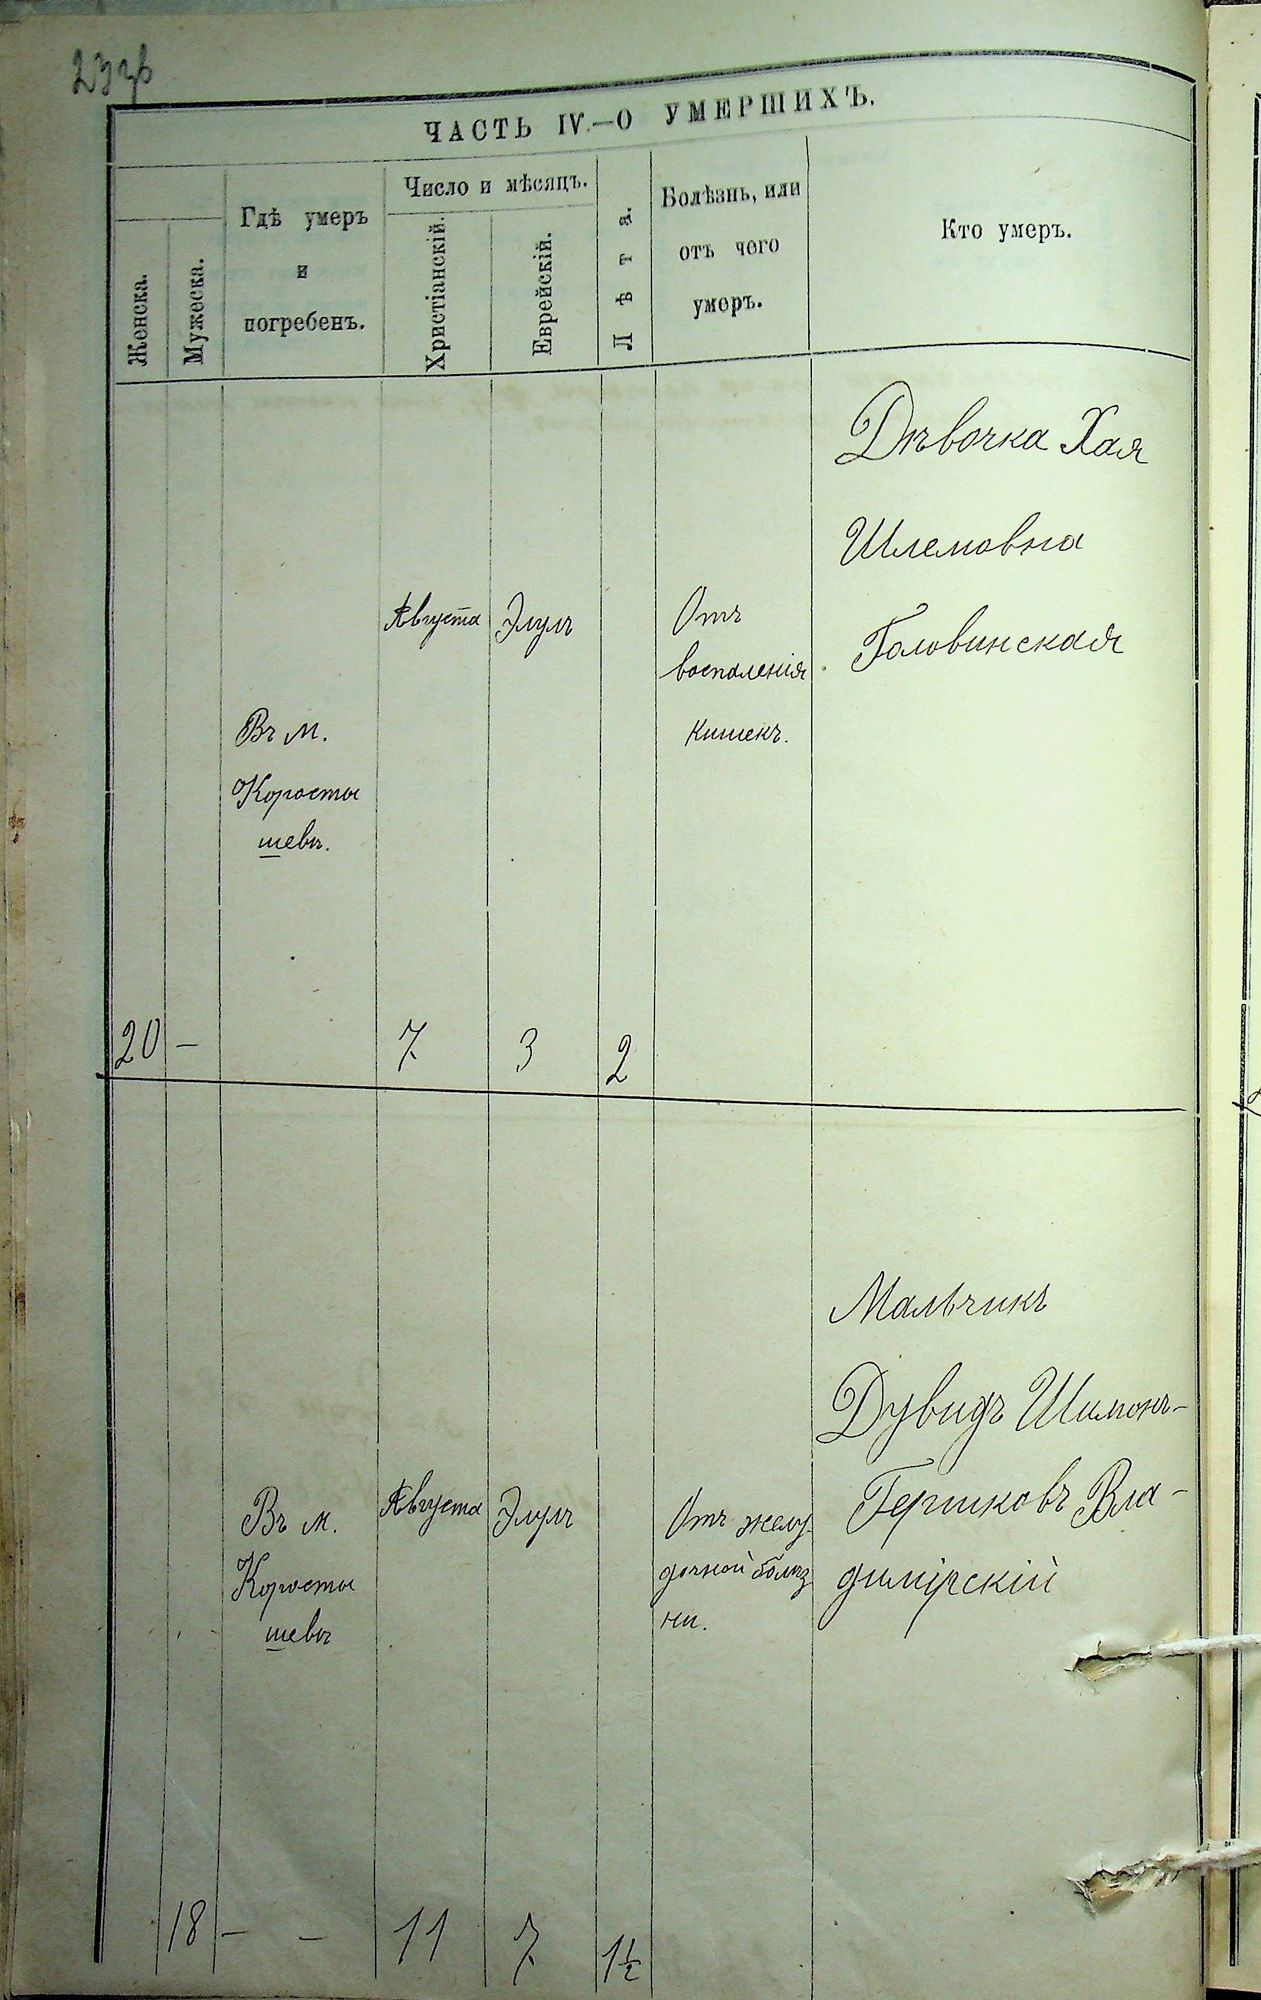 ЧАСТЬ IV.—О УМЕРШИХЪ.
Женска.
Мужеска.
Гдѣ умеръ
и
погребенъ.
Число и мѣсяцъ.
Христіанскій.
Еврейскій.
Лѣта.
Болѣзнь, или
отъ чего
умеръ.
Кто умеръ.
Дѣвочка Хая
Шлемовна
Головинская
Августа
Элулъ
Отъ
воспаленія
кишекъ.
Въ м.
Коросты
шевѣ.
20
—
7
3
2
Мальчикъ
Дувидъ Шимонъ-
Гершковъ Вла-
димірскій
Въ м.
Коросты
шевѣ
Августа
Элулъ
Отъ желу-
дочной болѣз
ни.
18
— —
11
7
1½